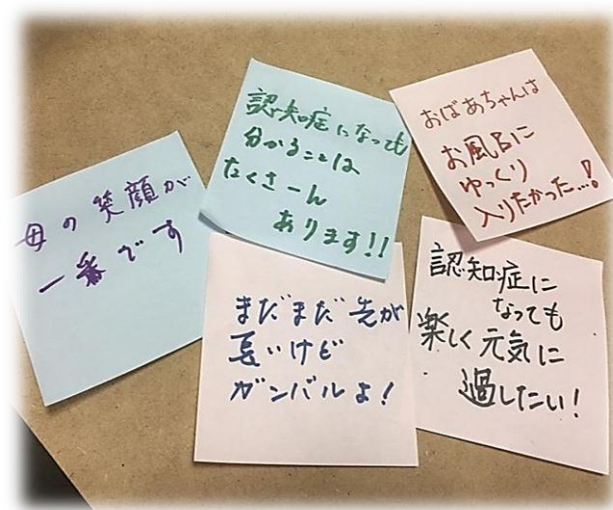 母の笑顔が
一番です
認知症になっても
分かることは
たくさーん
あります!!
おばあちゃんは
お風呂に
ゆっくり
入りたかった…!
まだまだ先が
長いけど
ガンバルよ!
認知症に
なっても
楽しく元気に
過したい!